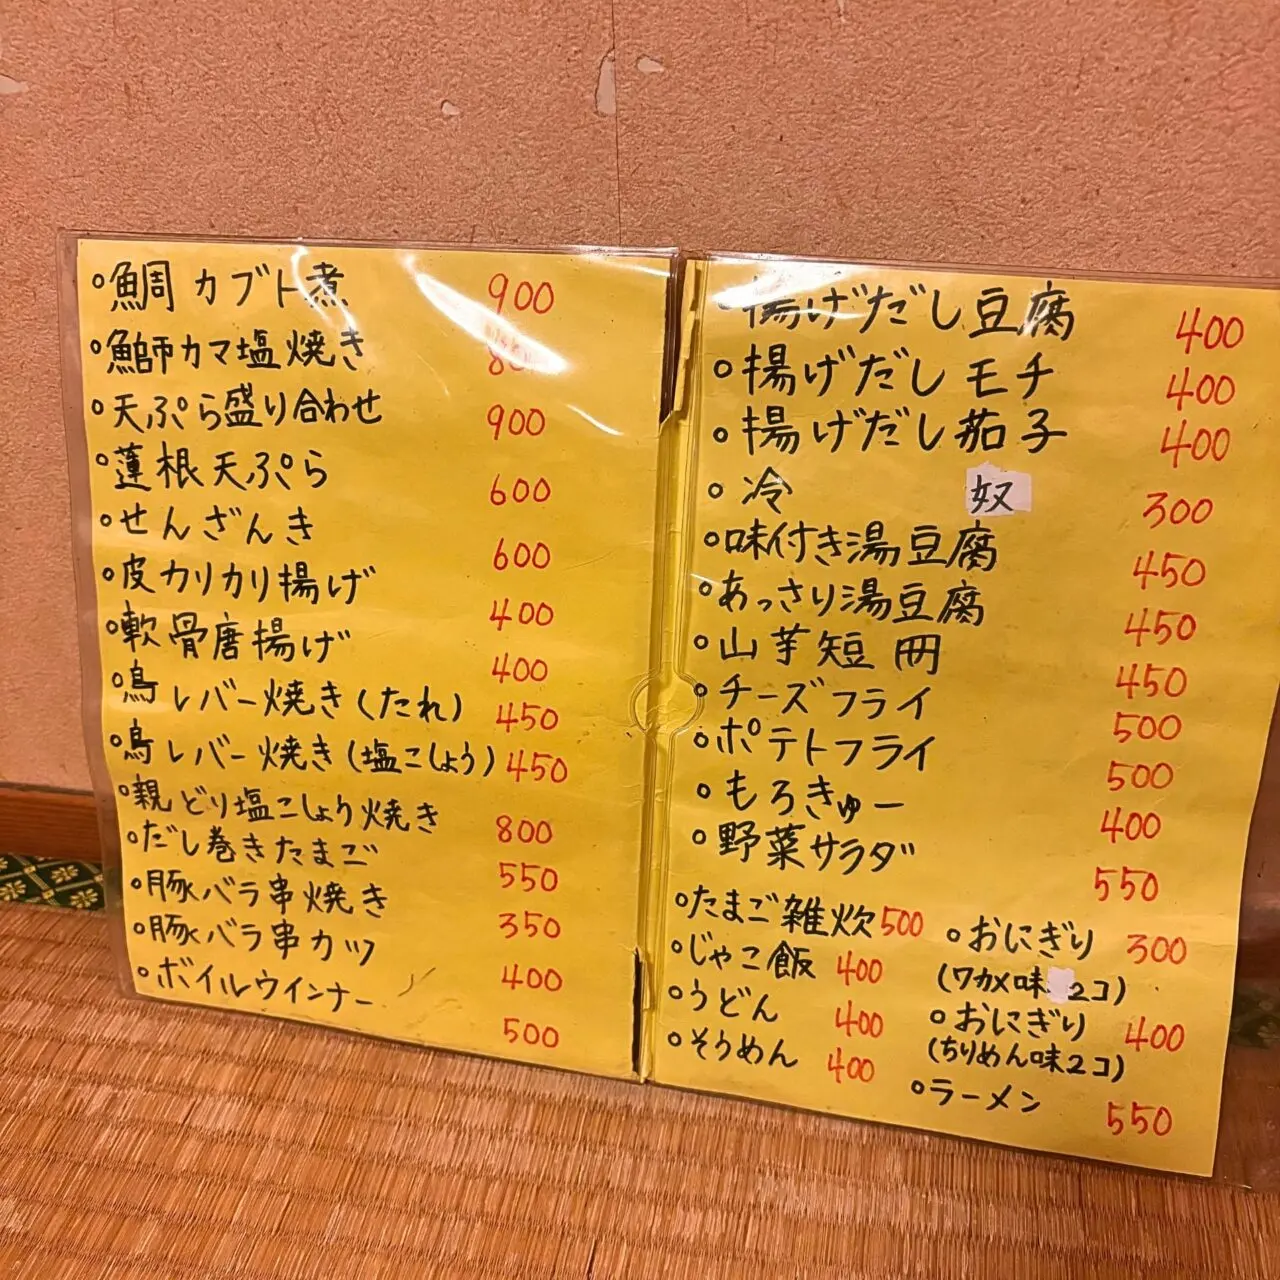 。鯛カブト煮 900
。鰤カマ塩焼き
。天ぷら盛り合わせ 900
。蓮根天ぷら 600
。せんざんき 600
。皮カリカリ揚げ 400
。軟骨唐揚げ 400
。鳥レバー焼き(たれ) 450
。鳥レバー焼き(塩こしょう) 450
。親どり塩こしょう焼き 800
。だし巻きたまご 550
。豚バラ串焼き 350
。豚バラ串カツ 400
。ボイルウインナー 500
。揚げだし豆腐 400
。揚げだしモチ 400
。揚げだし茄子 400
。冷 奴 300
。味付き湯豆腐 450
。あっさり湯豆腐 450
。山芋短冊 450
。チーズフライ 500
。ポテトフライ 500
。もろきゅー 400
。野菜サラダ 550
。たまご雑炊 500
。じゃこ飯 400
。うどん 400
。そうめん 400
。おにぎり 300
(ワカメ味2コ)
。おにぎり 400
(ちりめん味2コ)
。ラーメン 550